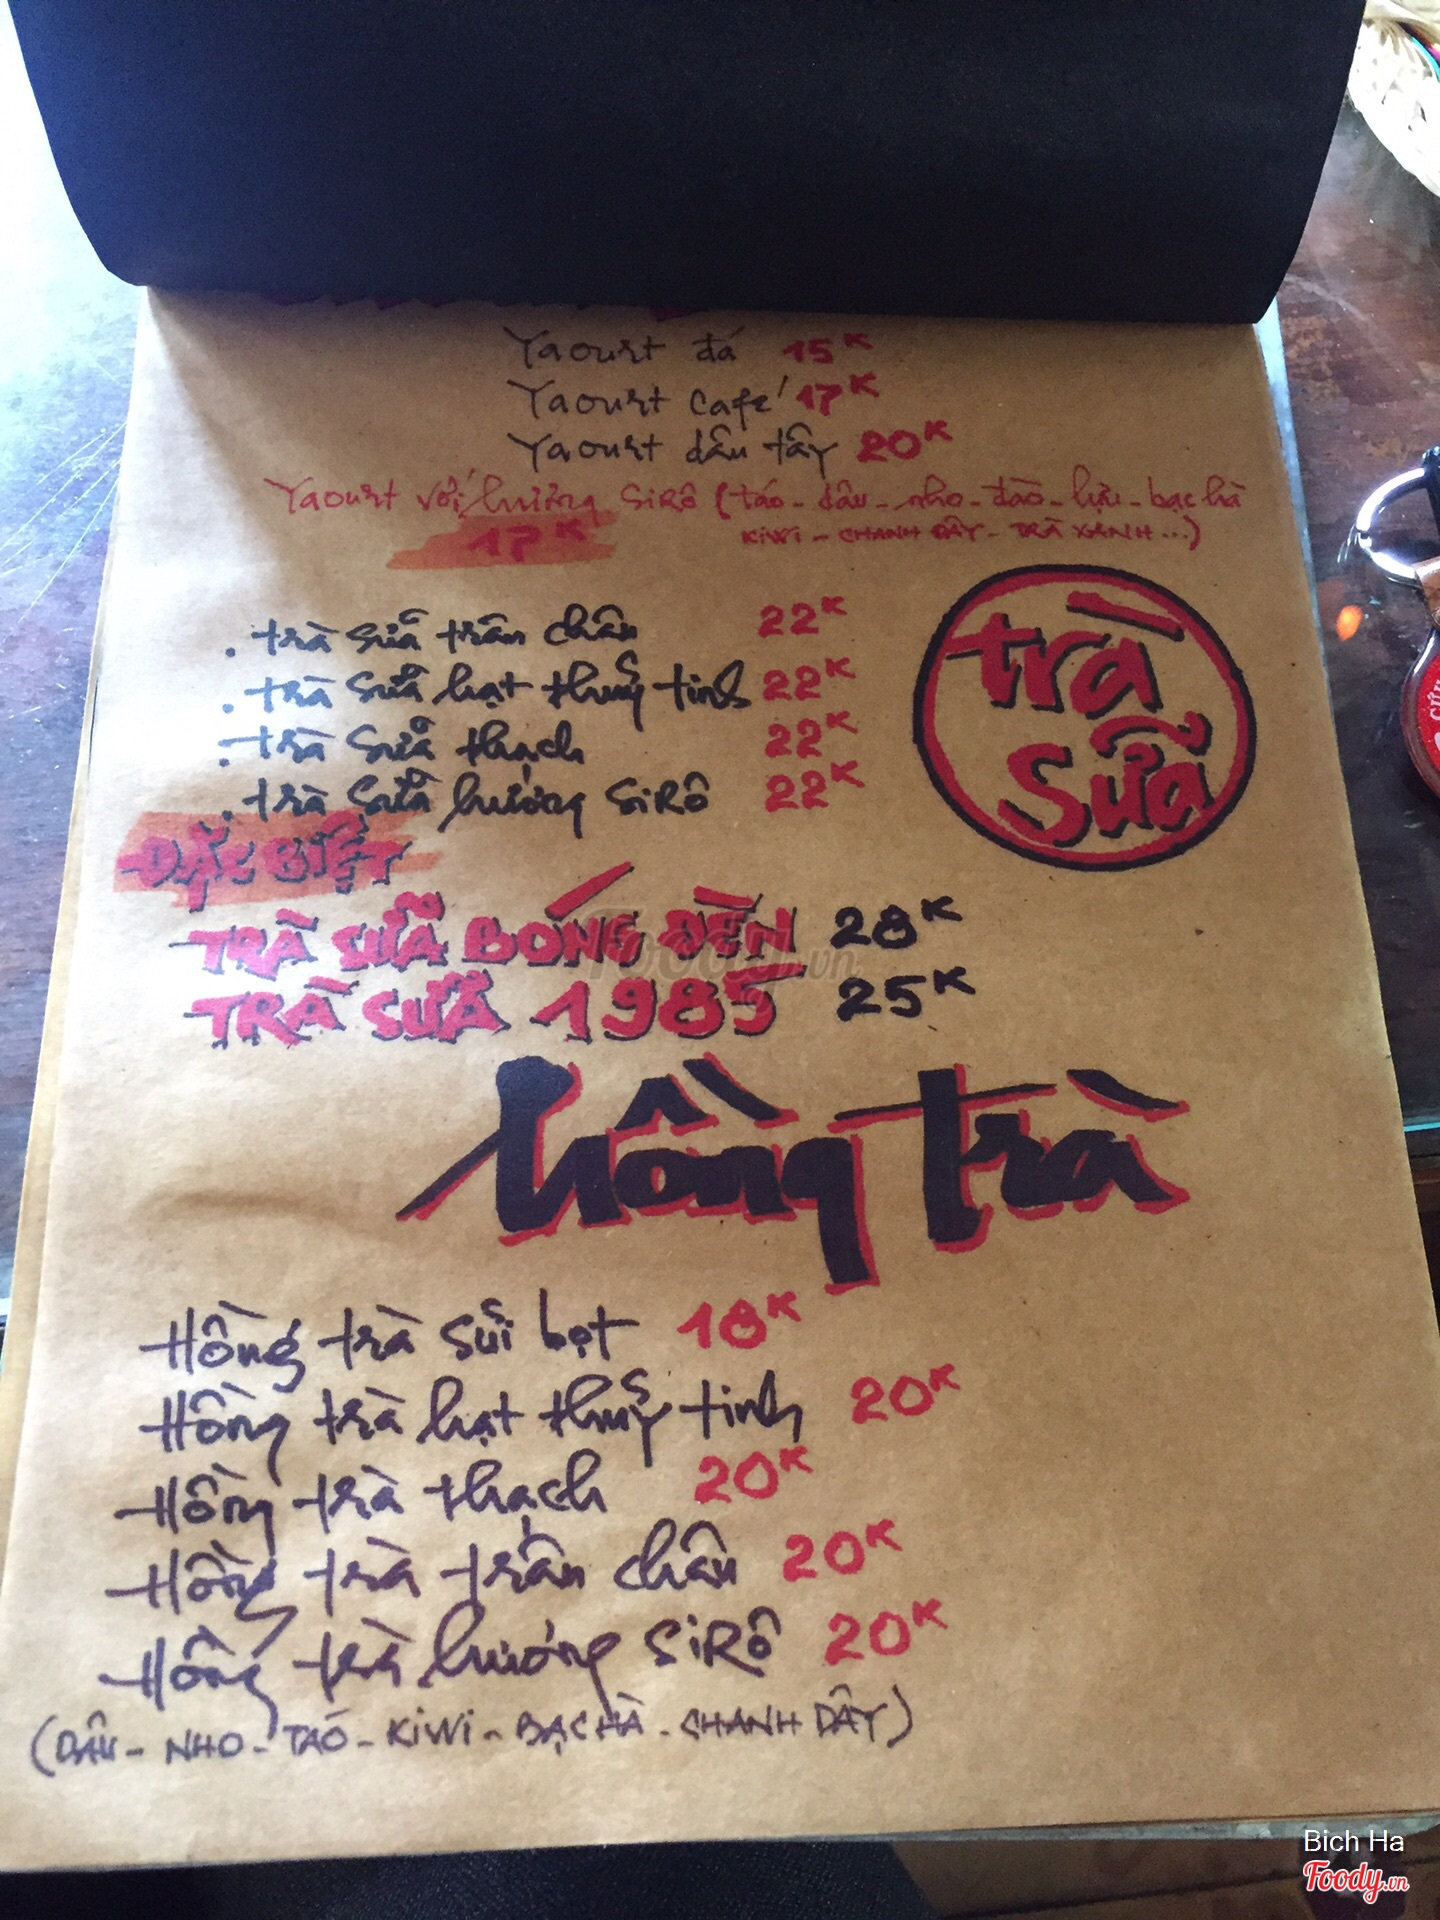 Yaourt đá 15K
Yaourt café 17K
Yaourt dâu tây 20K
Yaourt với hương SiRô (táo - dâu - nho - đào - lựu - bạc hà
17K KiWi - CHANH DÂY - TRÀ XANH...)
trà sữa
. trà sữa trân châu 22K
. trà sữa hạt thuỷ tinh 22K
. trà sữa thạch 22K
. trà sữa hương SiRô 22K
ĐẶC BIỆT
TRÀ SỮA BÓNG ĐÈN 28K
TRÀ SỮA 1985 25K
Foody.vn
hồng trà
Hồng trà sủi bọt 18K
Hồng trà hạt thuỷ tinh 20K
Hồng trà thạch 20K
Hồng trà trân châu 20K
Hồng trà hương SiRô 20K
(DÂU - NHO - TÁO - KiWi - BẠC HÀ - CHANH DÂY)
Bich Ha
Foody.vn